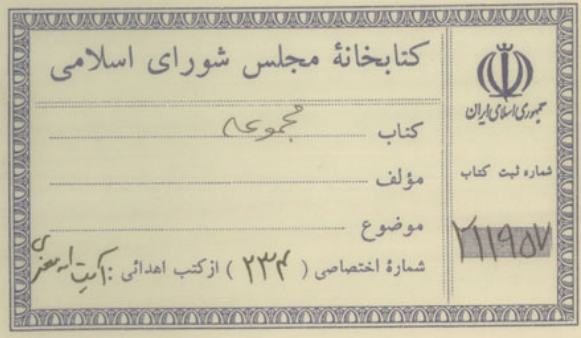 کتابخانهٔ مجلس شورای اسلامی
کتاب مجموعه
مؤلف
موضوع
شمارهٔ اختصاصی ( ۲۳۴ ) از کتب اهدائی :
جمهوری اسلامی ایران
شماره ثبت کتاب
۲۱۱۹۵۷